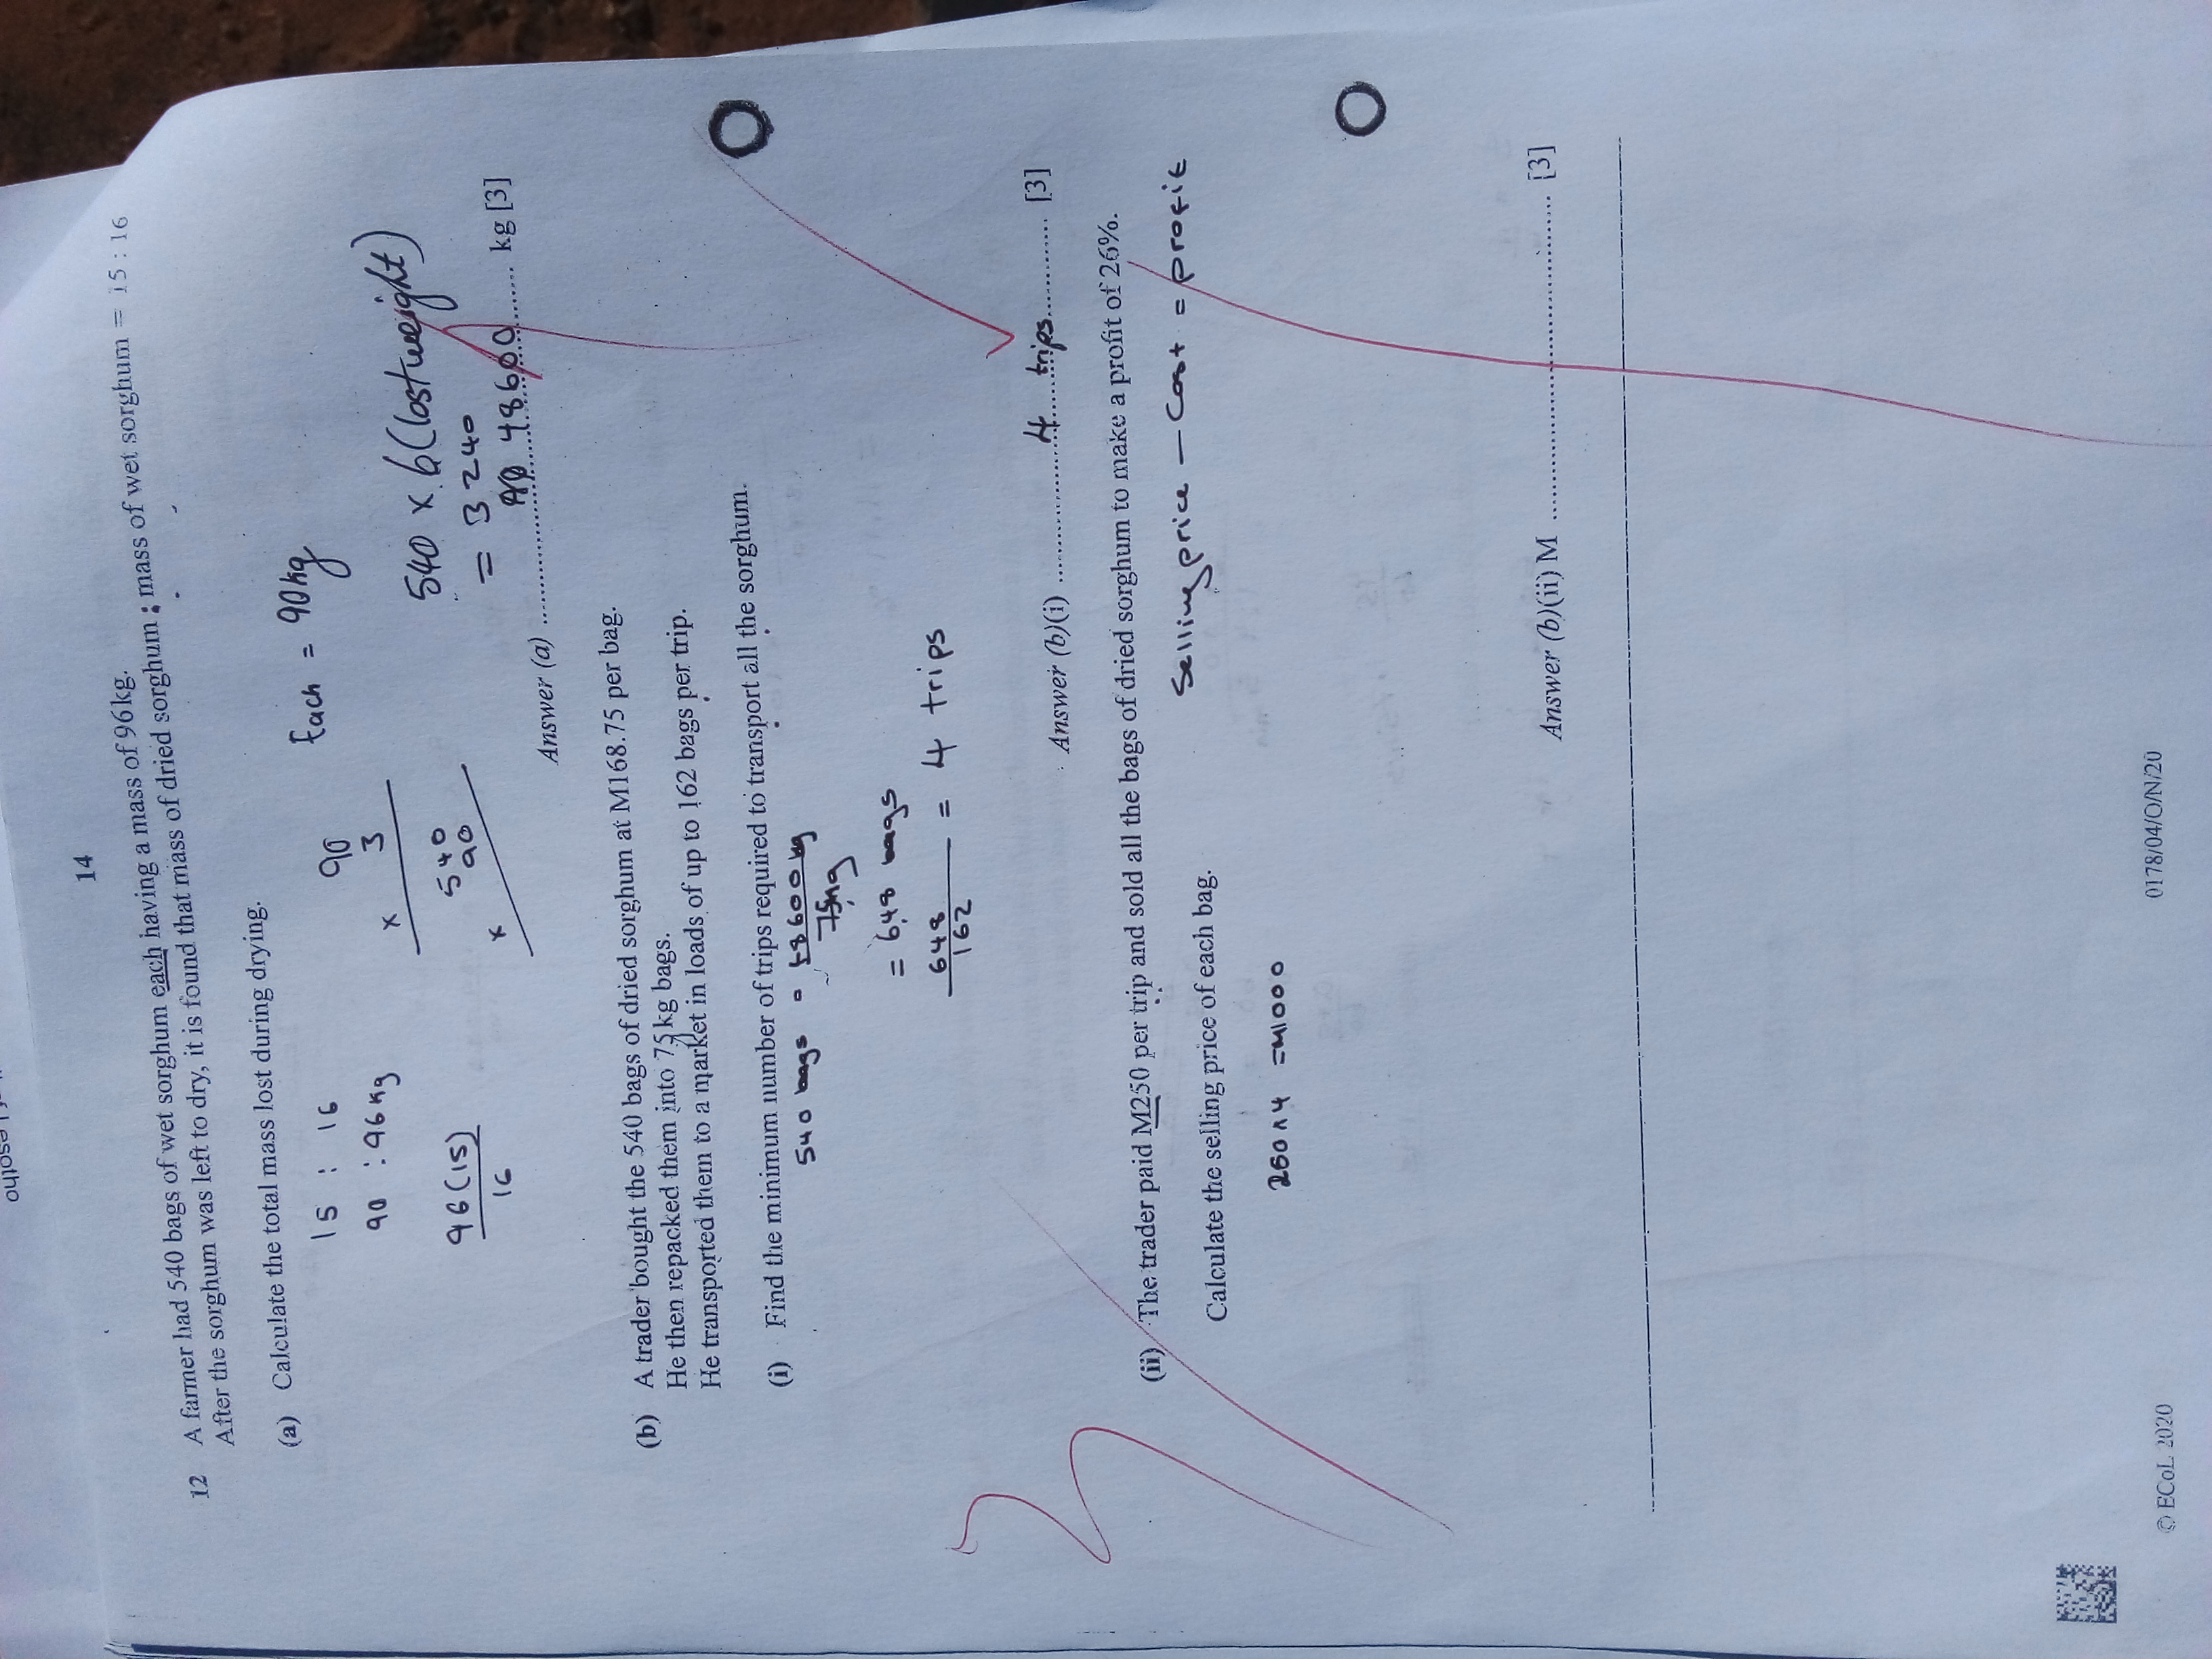 14
12 A farmer had 540 bags of wet sorghum each having a mass of 96 kg.
After the sorghum was left to dry, it is found that mass of dried sorghum : mass of wet sorghum = 15 : 16
(a) Calculate the total mass lost during drying.
15 : 16
90 : 96 kg
96(15)
16
90
x 3
540
x 90
Each = 90kg
540 x 6 (lost weight)
= 3240
48600
Answer (a) .......... kg [3]
(b) A trader bought the 540 bags of dried sorghum at M168.75 per bag.
He then repacked them into 75 kg bags.
He transported them to a market in loads of up to 162 bags per trip.
(i) Find the minimum number of trips required to transport all the sorghum.
540 bags = 48600 kg
75kg
= 648 bags
648
162
= 4 trips
Answer (b)(i) .......... 4 trips .......... [3]
(ii) The trader paid M250 per trip and sold all the bags of dried sorghum to make a profit of 26%.
Selling price - Cost = profit
Calculate the selling price of each bag.
=M1000
Answer (b)(ii) M .......... [3]
3
© ECoL 2020
0178/04/O/N/20